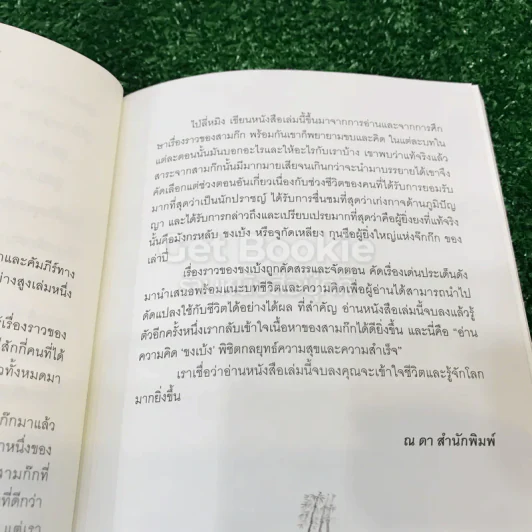 และคัมภีร์ทาง
อย่างสูงเล่มหนึ่ง
เรื่องราวของ
ไส้กกี่คนที่ได้
วทั้งหมดมา
ก๊กมาแล้ว
าหนึ่งของ
ามก๊กที่
ที่ดีกว่า
แต่เรา
ไป่ลี่หมิง เขียนหนังสือเล่มนี้ขึ้นมาจากการอ่านและจากการศึก
ษาเรื่องราวของสามก๊ก พร้อมกันเขาก็พยายามขบและคิด ในแต่ละบทใน
แต่ละตอนนั้นมันบอกอะไรและให้อะไรกับเราบ้าง เขาพบว่าแท้จริงแล้ว
สาระจากสามก๊กนั้นมีมากมายเสียจนเกินกว่าจะนำมาบรรยายได้เขาจึง
คัดเลือกแต่ช่วงตอนอันเกี่ยวเนื่องกับช่วงชีวิตของคนที่ได้รับการยอมรับ
มากที่สุดว่าเป็นนักปราชญ์ ได้รับการชื่นชมที่สุดว่าเก่งกาจด้านภูมิปัญ
ญา และได้รับการกล่าวถึงและเปรียบเปรยมากที่สุดว่าคือผู้ยิ่งยงที่แท้จริง
นั้นคือมังกรหลับ ขงเบ้ง หรือจูกัดเหลียง กุนซือผู้ยิ่งใหญ่แห่งจ๊กก๊ก ของ
เล่าปี่
Get Bookie
เรื่องราวของขงเบ้งถูกคัดสรรและจัดตอน คัดเรื่องเด่นประเด็นดัง
มานำเสนอพร้อมแนะบทชีวิตและความคิดเพื่อผู้อ่านได้สามารถนำไป
ดัดแปลงใช้กับชีวิตได้อย่างได้ผล ที่สำคัญ อ่านหนังสือเล่มนี้จบลงแล้วรู้
ตัวอีกครั้งหนึ่งเรากลับเข้าใจเนื้อหาของสามก๊กได้ดียิ่งขึ้น และนี่คือ "อ่าน
ความคิด 'ขงเบ้ง' พิชิตกลยุทธ์ความสุขและความสำเร็จ"
เราเชื่อว่าอ่านหนังสือเล่มนี้จบลงคุณจะเข้าใจชีวิตและรู้จักโลก
มากยิ่งขึ้น
ณ ดา สำนักพิมพ์